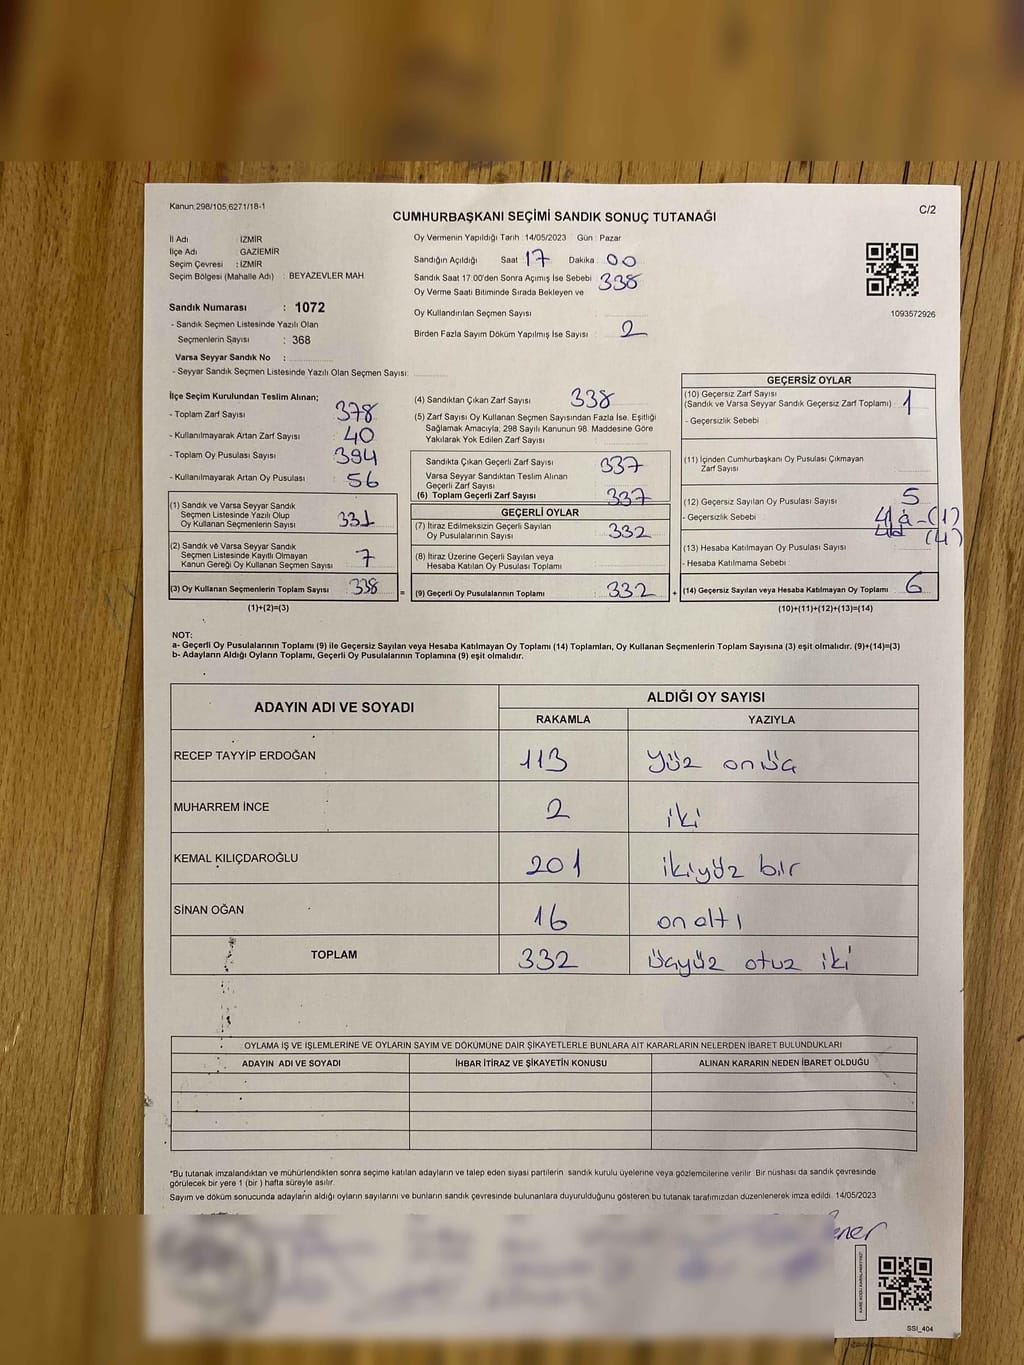 Kanun;298/105,6271/18-1
C/2
CUMHURBAŞKANI SEÇİMİ SANDIK SONUÇ TUTANAĞI
İl Adı : İZMİR
İlçe Adı : GAZİEMİR
Seçim Çevresi : İZMİR
Seçim Bölgesi (Mahalle Adı) : BEYAZEVLER MAH
Sandık Numarası : 1072
- Sandık Seçmen Listesinde Yazılı Olan
Seçmenlerin Sayısı : 368
Varsa Seyyar Sandık No :
- Seyyar Sandık Seçmen Listesinde Yazılı Olan Seçmen Sayısı:
Oy Vermenin Yapıldığı Tarih : 14/05/2023 Gün : Pazar
Sandığın Açıldığı Saat : 17 Dakika : 00
Sandık Saat 17:00'den Sonra Açımış İse Sebebi : 338
Oy Verme Saati Bitiminde Sırada Bekleyen ve
Oy Kullandırılan Seçmen Sayısı :
Birden Fazla Sayım Döküm Yapılmış İse Sayısı : 2
1093572926
İlçe Seçim Kurulundan Teslim Alınan;
- Toplam Zarf Sayısı : 378
- Kullanılmayarak Artan Zarf Sayısı : 40
- Toplam Oy Pusulası Sayısı : 394
- Kullanılmayarak Artan Oy Pusulası : 56
(1) Sandık ve Varsa Seyyar Sandık
Seçmen Listesinde Yazılı Olup
Oy Kullanan Seçmenlerin Sayısı : 331
(2) Sandık ve Varsa Seyyar Sandık
Seçmen Listesinde Kayıtlı Olmayan
Kanun Gereği Oy Kullanan Seçmen Sayısı : 7
(3) Oy Kullanan Seçmenlerin Toplam Sayısı : 338
(1)+(2)=(3)
=
(4) Sandıktan Çıkan Zarf Sayısı : 338
(5) Zarf Sayısı Oy Kullanan Seçmen Sayısından Fazla İse, Eşitliği
Sağlamak Amacıyla; 298 Sayılı Kanunun 98. Maddesine Göre
Yakılarak Yok Edilen Zarf Sayısı :
Sandıkta Çıkan Geçerli Zarf Sayısı : 337
Varsa Seyyar Sandıktan Teslim Alınan
Geçerli Zarf Sayısı :
(6) Toplam Geçerli Zarf Sayısı : 337
GEÇERLİ OYLAR
(7) İtiraz Edilmeksizin Geçerli Sayılan
Oy Pusulalarının Sayısı : 332
(8) İtiraz Üzerine Geçerli Sayılan veya
Hesaba Katılan Oy Pusulası Toplamı :
(9) Geçerli Oy Pusulalarının Toplamı : 332
+
GEÇERSİZ OYLAR
(10) Geçersiz Zarf Sayısı
(Sandık ve Varsa Seyyar Sandık Geçersiz Zarf Toplamı) : 1
- Geçersizlik Sebebi :
(11) İçinden Cumhurbaşkanı Oy Pusulası Çıkmayan
Zarf Sayısı :
(12) Geçersiz Sayılan Oy Pusulası Sayısı : 5
- Geçersizlik Sebebi : 4/a-(1)
4/d (4)
(13) Hesaba Katılmayan Oy Pusulası Sayısı :
- Hesaba Katılmama Sebebi :
(14) Geçersiz Sayılan veya Hesaba Katılmayan Oy Toplamı : 6
(10)+(11)+(12)+(13)=(14)
NOT:
a- Geçerli Oy Pusulalarının Toplamı (9) ile Geçersiz Sayılan veya Hesaba Katılmayan Oy Toplamı (14) Toplamları, Oy Kullanan Seçmenlerin Toplam Sayısına (3) eşit olmalıdır. (9)+(14)=(3)
b- Adayların Aldığı Oyların Toplamı, Geçerli Oy Pusulalarının Toplamına (9) eşit olmalıdır.
ADAYIN ADI VE SOYADI ALDIĞI OY SAYISI
RAKAMLA YAZIYLA
RECEP TAYYİP ERDOĞAN 113 Yüz onüç
MUHARREM İNCE 2 iki
KEMAL KILIÇDAROĞLU 201 ikiyüz bir
SİNAN OĞAN 16 on altı
TOPLAM 332 üçyüz otuz iki
OYLAMA İŞ VE İŞLEMLERİNE VE OYLARIN SAYIM VE DÖKÜMÜNE DAİR ŞİKAYETLERLE BUNLARA AİT KARARLARIN NELERDEN İBARET BULUNDUKLARI
ADAYIN ADI VE SOYADI İHBAR İTİRAZ VE ŞİKAYETİN KONUSU ALINAN KARARIN NEDEN İBARET OLDUĞU
*Bu tutanak imzalandıktan ve mühürlendikten sonra seçime katılan adayların ve talep eden siyasi partilerin sandık kurulu üyelerine veya gözlemcilerine verilir. Bir nüshası da sandık çevresinde
görülecek bir yere 1 (bir ) hafta süreyle asılır.
Sayım ve döküm sonucunda adayların aldığı oyların sayılarını ve bunların sandık çevresinde bulunanlara duyurulduğunu gösteren bu tutanak tarafımızdan düzenlenerek imza edildi. 14/05/2023
SSI_404